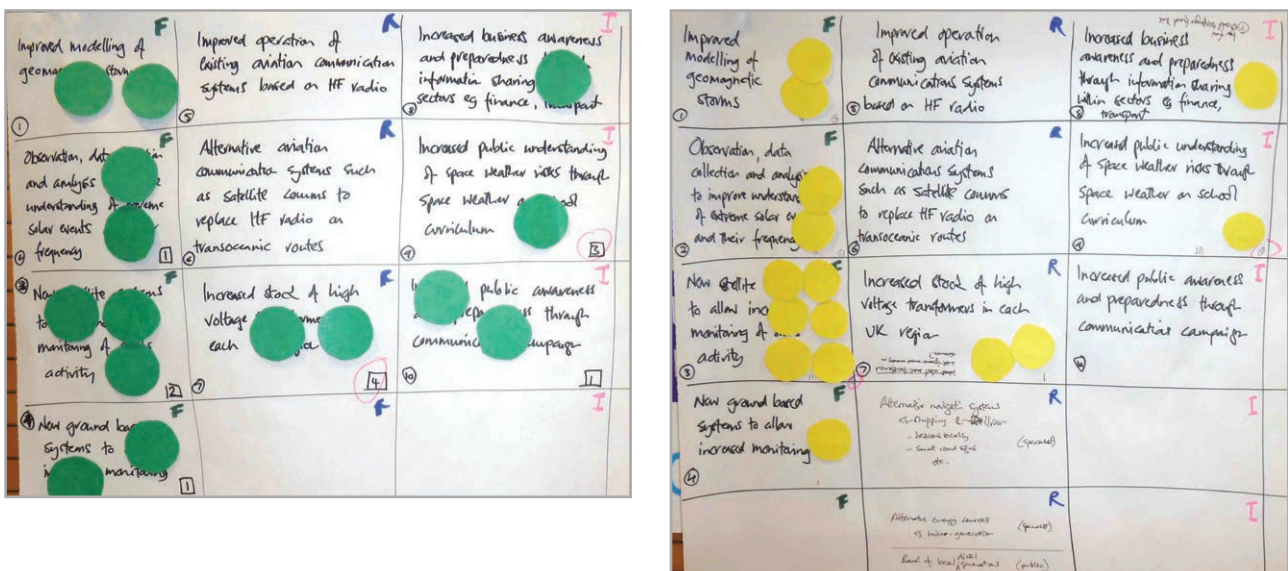 F
R
I
Improved modelling of
①
Improved operation of
existing aviation communication
systems based on HF radio
⑤
Increased business awareness
and preparedness
information sharing
sectors eg finance,
⑧
F
R
I
Observation,
and analysis
understanding of
solar events
frequency
1
Alternative aviation
communication systems such
as satellite comms to
replace HF radio on
transoceanic routes
⑥
Increased public understanding
of space weather risks through
space weather on
curriculum
⑨
3
F
R
I
New
to
monitoring of
activity
2
Increased stock of high
voltage
each
⑦
4
public awareness
through
⑩
1
F
R
I
New ground
systems to
monitoring
1
F
R
I
Improved
modelling of
geomagnetic
storms
①
Improved operation
of existing aviation
communications systems
based on HF radio
⑤
Increased business
awareness and preparedness
through information sharing
within sectors eg finance,
transport
⑧
F
R
I
Observation, data
collection and analysis
to improve
of extreme solar
and their frequency
②
Alternative aviation
communications systems
such as satellite comms
to replace HF radio on
transoceanic routes
⑥
Increased public understanding
of space weather risks through
space weather on school
curriculum
⑨
F
R
I
New
to allow
monitoring of
activity
③
Increased stock of high
voltage transformers in each
UK region
⑦
Increased public awareness
and preparedness through
communication campaign
⑩
F
R
I
New ground based
systems to allow
increased monitoring
④
Alternative navigation systems
- beacons locally
- small road signs
etc.
F
R
I
Alternative energy sources
eg micro-generation
Bank of local diesel
generators
(public)